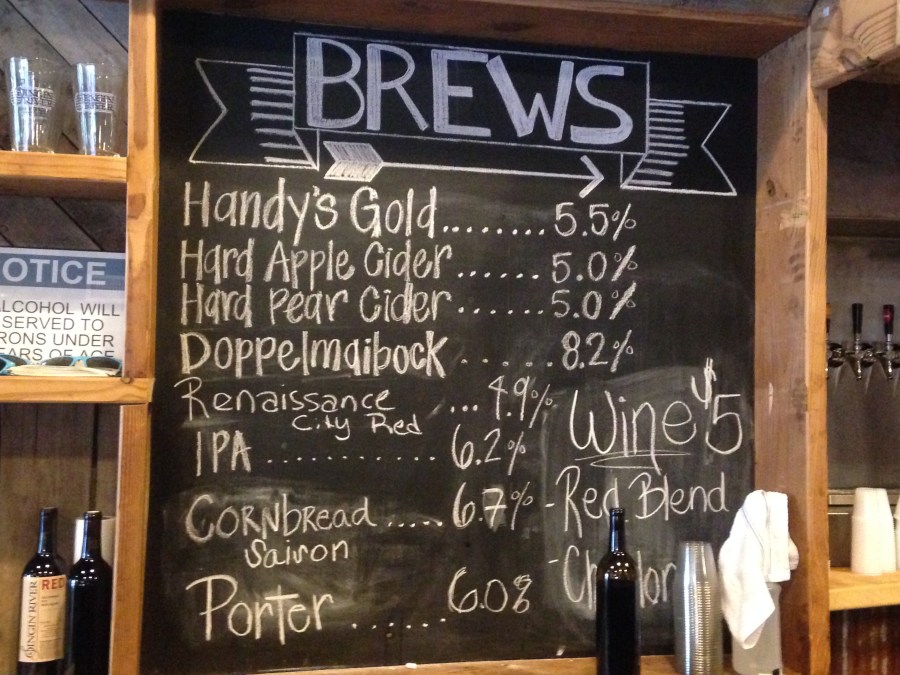 BREWS
Handy's Gold........5.5%
Hard Apple Cider......5.0%
Hard Pear Cider......5.0%
Doppelmaibock.....8.2%
Renaissance ...4.9%
City Red
IPA.............6.2%
Cornbread.....6.7%
Saison
Porter......6.0%
Wine $5
-Red Blend
OTICE
ALCOHOL WILL
SERVED TO
RONS UNDER
EARS OF AGE
RED